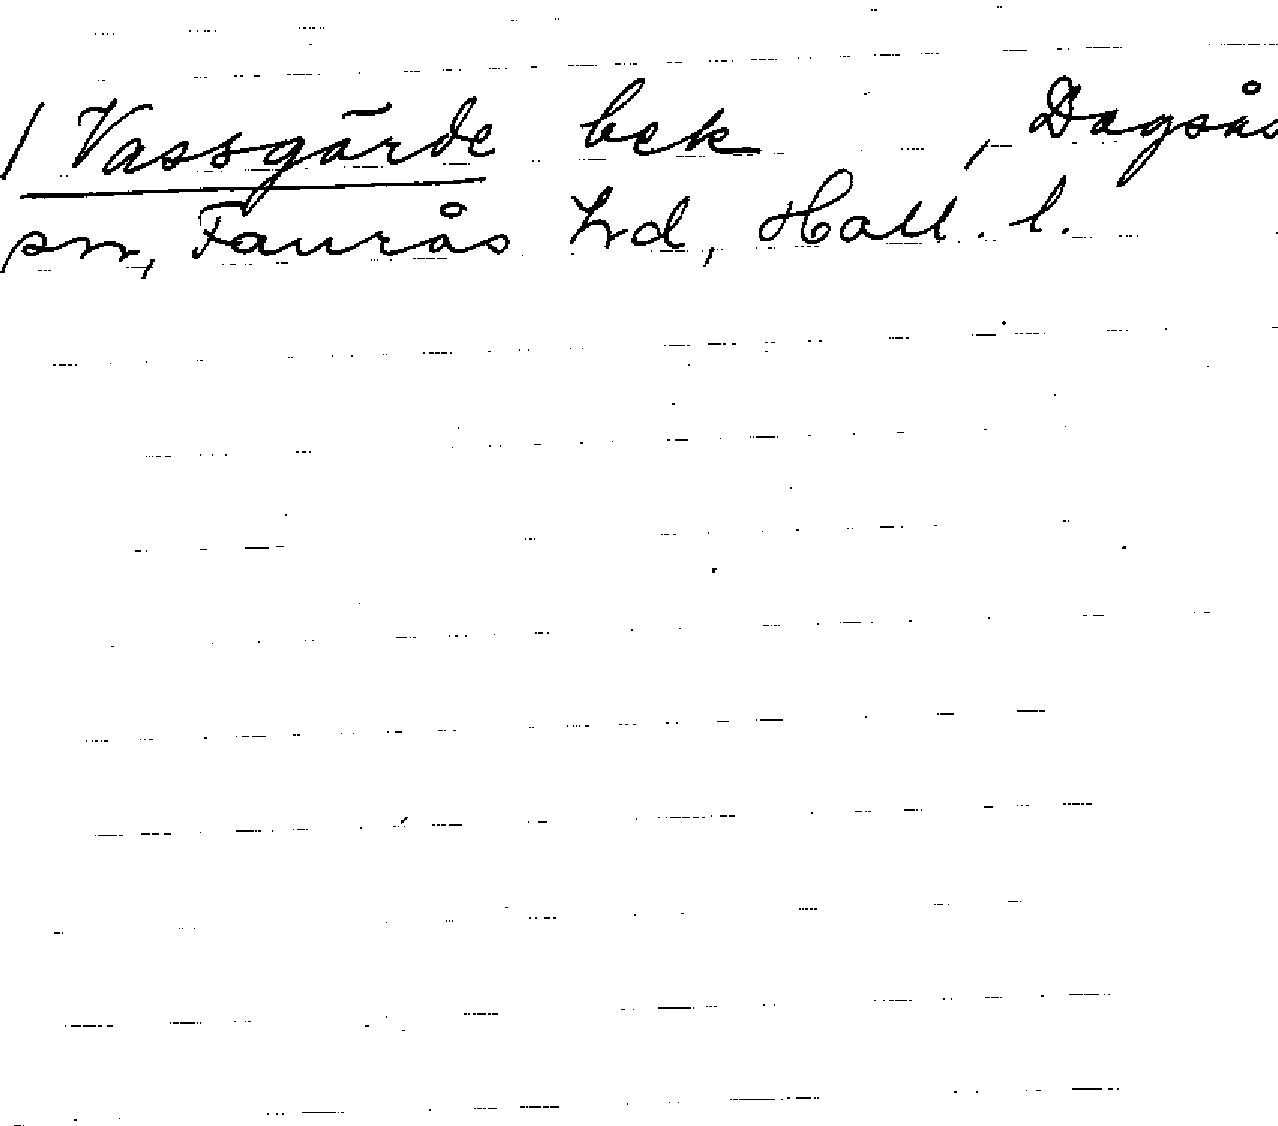 / Vassgärde bek , Dagsås
sn, Faurås hd, Hall. l.